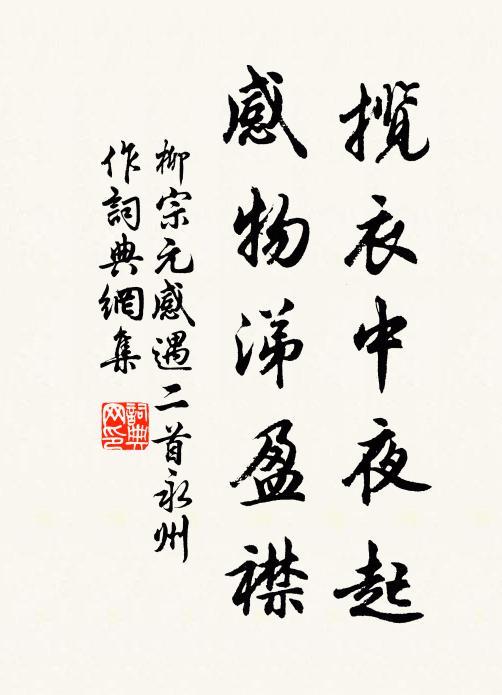 攬衣中夜起
感物涕盈襟
柳宗元感遇二首永州
作詞典網集
詞典
网印